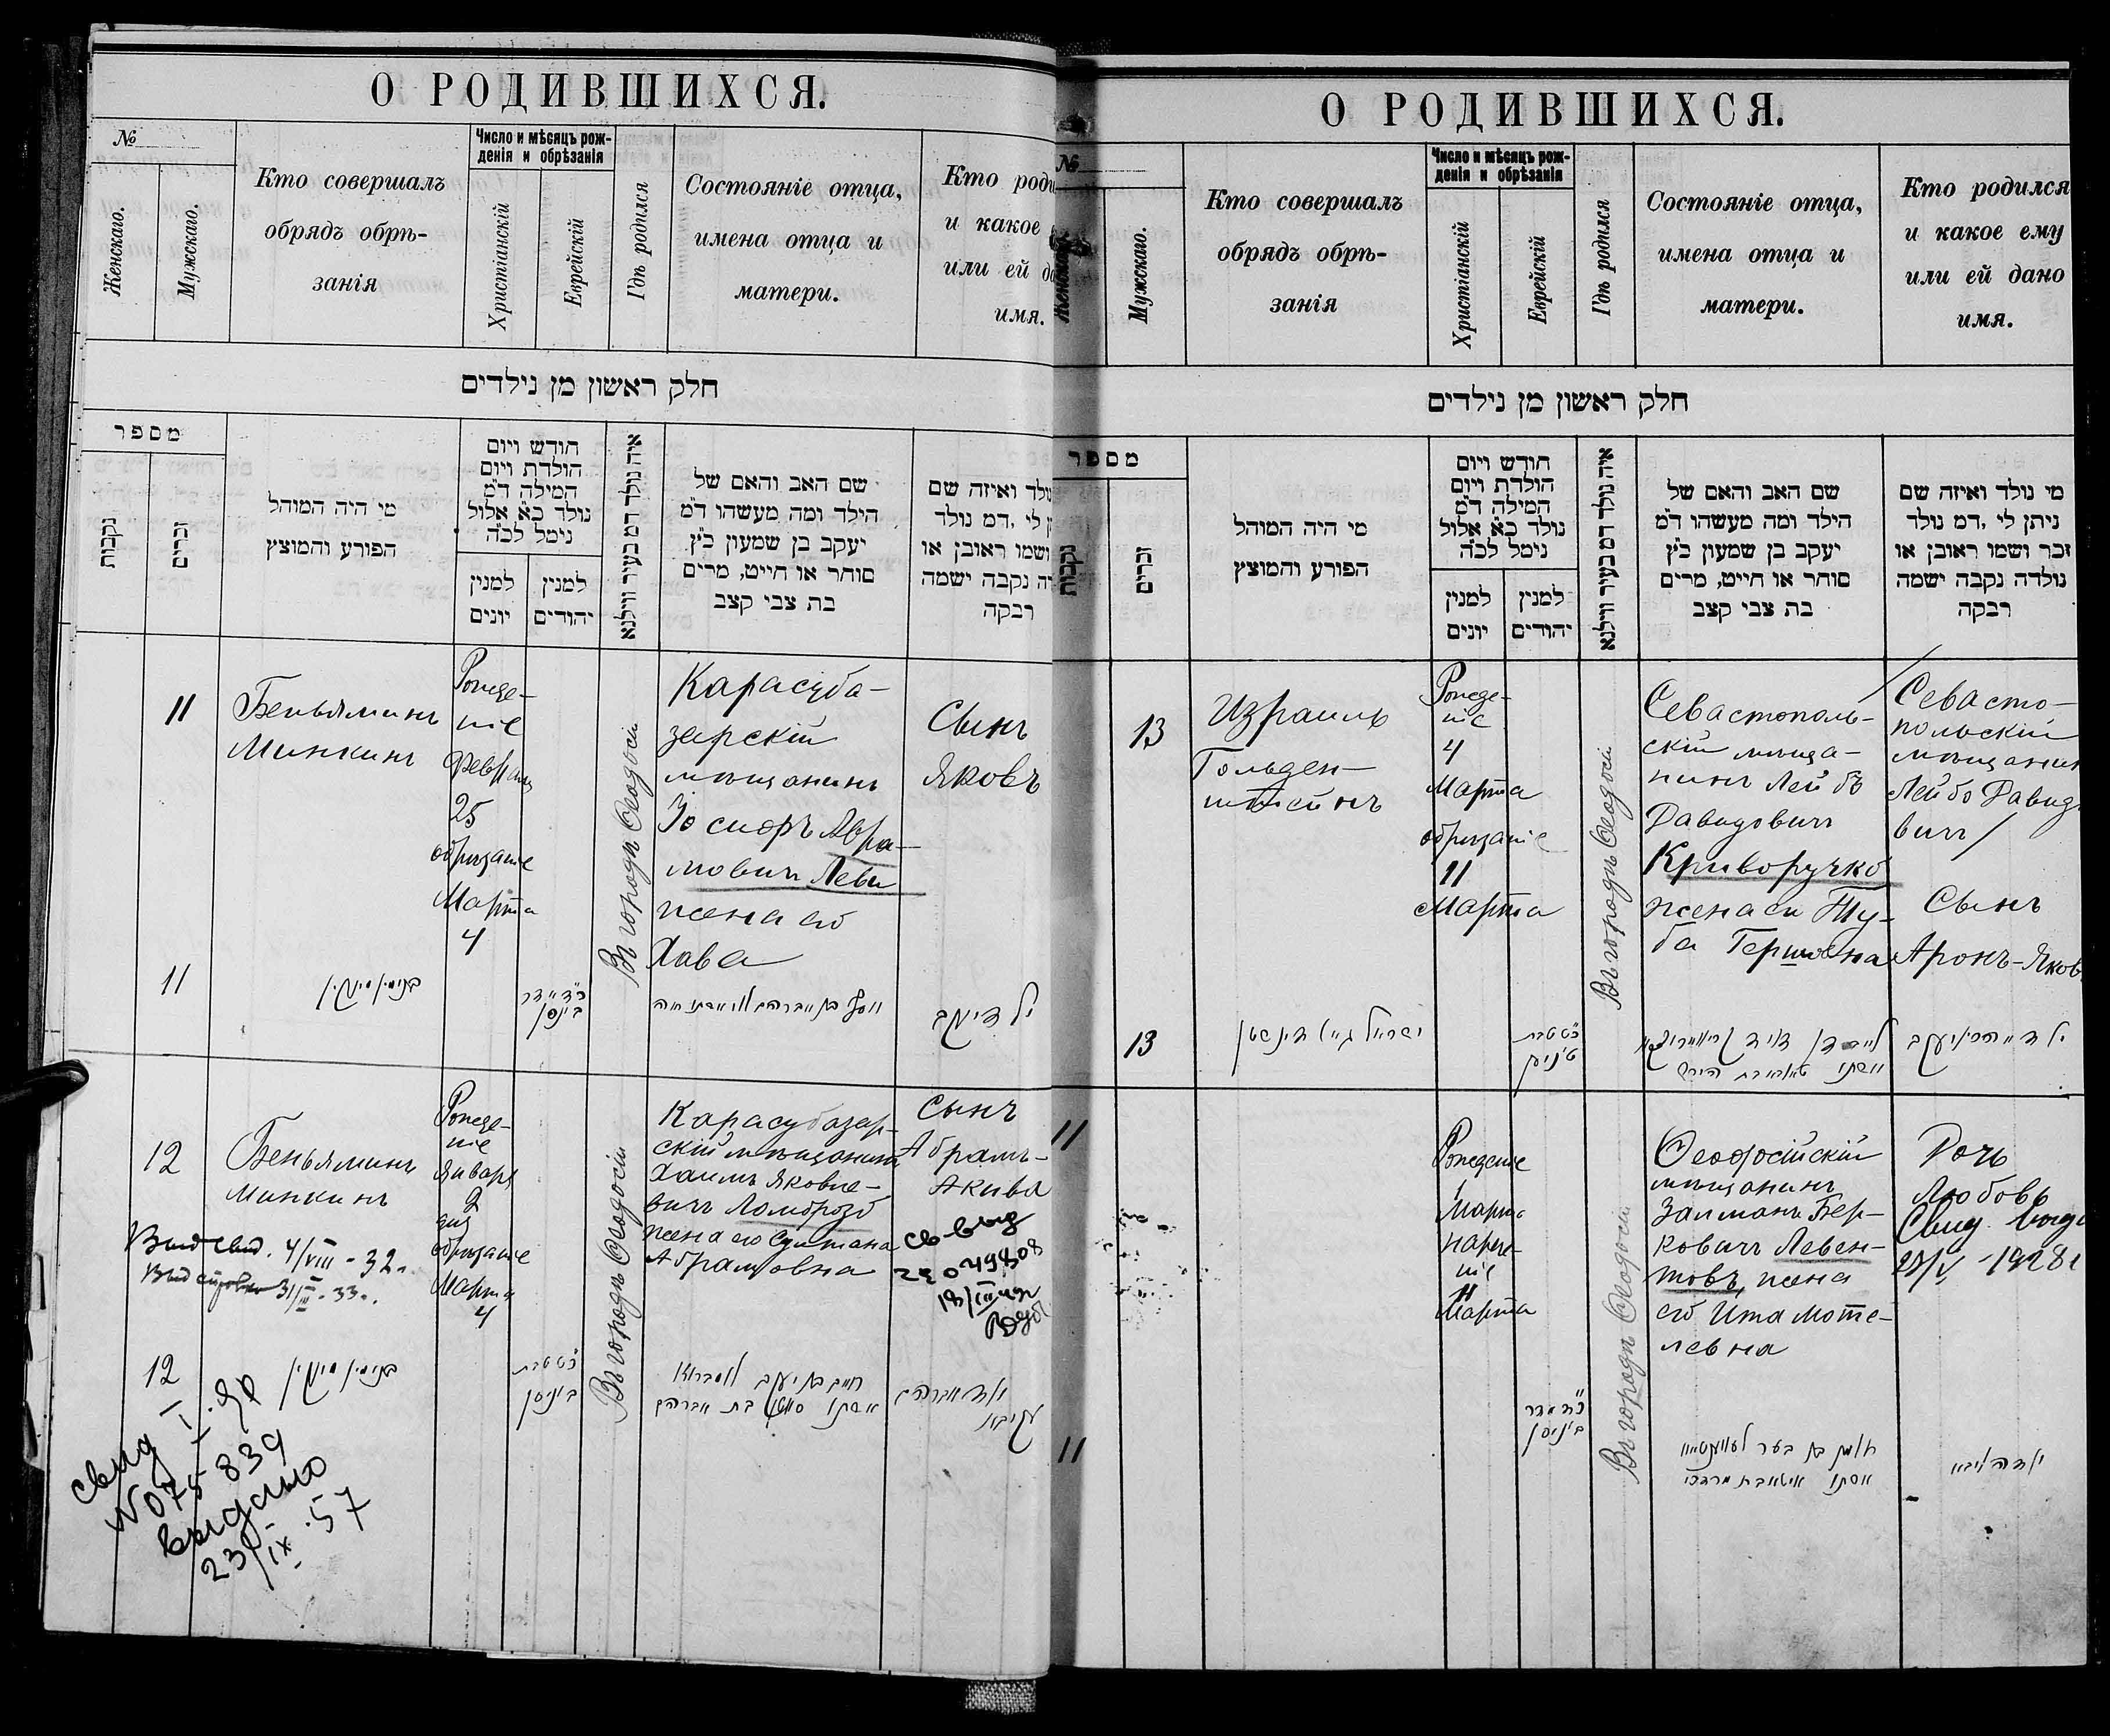 О РОДИВШИХСЯ.
№
Женскаго.
Мужскаго.
Кто совершалъ
обрядъ обрѣ-
занія
Число и мѣсяцъ рож-
денія и обрѣзанія
Христіанскій
Еврейскій
Гдѣ родился
Состояніе отца,
имена отца и
матери.
Кто роди
и какое
или ей да
имя.
חלק ראשון מן נילדים
מספר
נקבות
זכרים
מי היה המוהל
הפורע והמוצץ
חודש ויום
הולדת ויום
המילה ד״מ
נולד כ״א אלול
נימל לכ״ה
למנין
יונים
למנין
יהודים
איה נולד דמ בעיר ווילנא
שם האב והאם של
הילד ומה מעשהו ד״מ
יעקב בן שמעון כ״ץ
סוחר או חייט, מרים
בת צבי קצב
נולד ואיזה שם
לי ,דמ נולד
ושמו ראובן או
נקבה ישמה
רבקה
11
Беньяминъ
Минкинъ
Рожде-
ніе
Февраля
25
обрѣзаніе
Марта
4
Въ городѣ Ѳеодосіи
Карасуба-
зарскій
мѣщанинъ
Іосифъ Авра-
мовичъ Леви
жена его
Хава
Сынъ
Яковъ
11
בנימין מינקין
כ״ד אדר
ב ניסן
יוסף בן אברהם לוי אשתו חוה
ילד יעקב
12
Беньяминъ
Минкинъ
Рожде-
ніе
Января
2
дня
обрѣзаніе
Марта
4
Въ городѣ Ѳеодосіи
Карасубазар-
скій мѣщанинъ
Хаимъ Яковле-
вичъ Ломброзо
жена его Султана
Абрамовна
Сынъ
Абрамъ-
Акива
Выд свид. 4/VIII - 32 г.
31/III - 33 г.
12
בנימין מינקין
כ״ט טבת
ב ניסן
חיים בן יעקב לומברוזו
אשתו סולטנה בת אברהם
ילד אברהם
עקיבא
свид I-ЯР
№ 075839
выдано
23/IX.57
О РОДИВШИХСЯ.
№
Женскаго.
Мужскаго.
Кто совершалъ
обрядъ обрѣ-
занія
Число и мѣсяцъ рож-
денія и обрѣзанія
Христіанскій
Еврейскій
Гдѣ родился
Состояніе отца,
имена отца и
матери.
Кто родился
и какое ему
или ей дано
имя.
חלק ראשון מן נילדים
מספר
נקבות
זכרים
מי היה המוהל
הפורע והמוצץ
חודש ויום
הולדת ויום
המילה ד״מ
נולד כ״א אלול
נימל לכ״ה
למנין
יונים
למנין
יהודים
איה נולד דמ בעיר ווילנא
שם האב והאם של
הילד ומה מעשהו ד״מ
יעקב בן שמעון כ״ץ
סוחר או חייט, מרים
בת צבי קצב
מי נולד ואיזה שם
ניתן לי ,דמ נולד
זכר ושמו ראובן או
נולדה נקבה ישמה
רבקה
13
Израиль
Гольден-
штейнъ
Рожде-
ніе
4
Марта
обрѣзаніе
11
Марта
Въ городѣ Ѳеодосіи
Севастополь-
скій мѣща-
нинъ Лейбъ
Давидовичъ
Криворучко
жена его Ту-
ба Гершовна
/Севасто-
польскій
мѣщанин
Лейбо Давидо
вичъ/
Сынъ
Аронъ-Яков
13
11
Рожденіе
1
Марта
нарече-
ніе
11
Марта
Въ городѣ Ѳеодосіи
Ѳеодосійскій
мѣщанинъ
Залманъ Бер-
ковичъ Левен-
товъ, жена
его Ита Моте-
левна
Дочь
Любовь
Свид. выда
28/V - 1928 г
11
כ״ח אדר
ב ניסן
זלמן בן בער לעווענטאוו
אשתו איטא בת מרדכי
ילדה ליבא